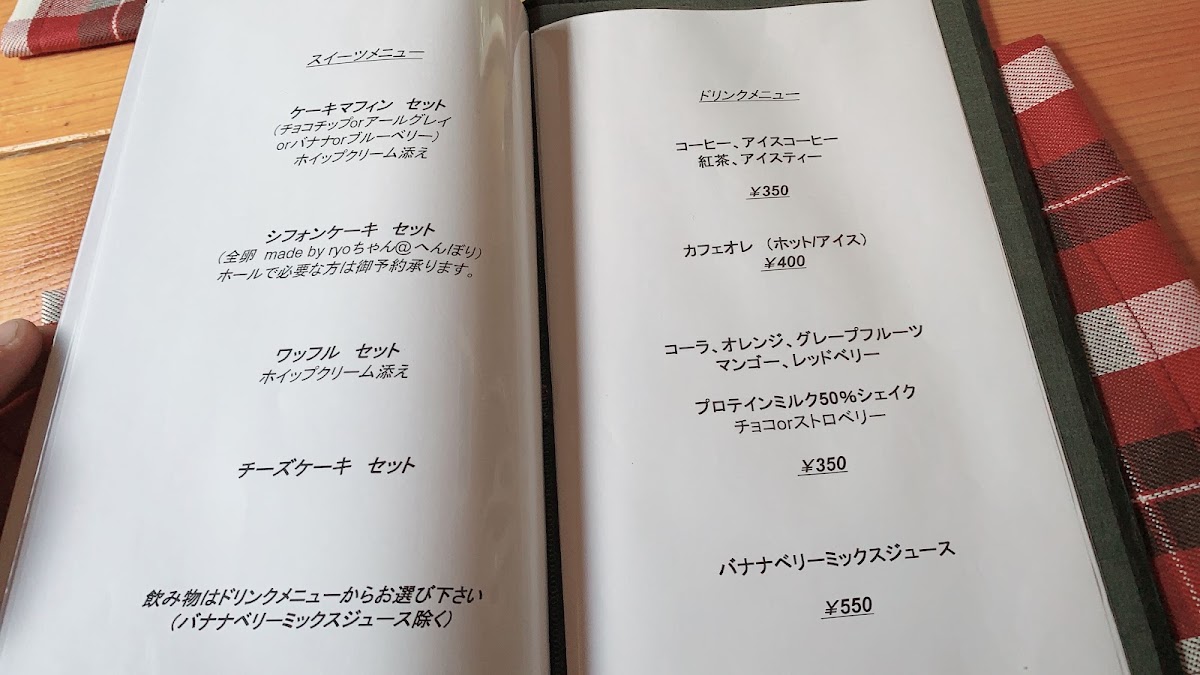 スイーツメニュー
ケーキマフィン セット
(チョコチップorアールグレイ
orバナナorブルーベリー)
ホイップクリーム添え
シフォンケーキ セット
(全卵 made by ryoちゃん@へんぼり)
ホールで必要な方は御予約承ります。
ワッフル セット
ホイップクリーム添え
チーズケーキ セット
飲み物はドリンクメニューからお選び下さい
(バナナベリーミックスジュース除く)
ドリンクメニュー
コーヒー、アイスコーヒー
紅茶、アイスティー
¥350
カフェオレ (ホット/アイス)
¥400
コーラ、オレンジ、グレープフルーツ
マンゴー、レッドベリー
プロテインミルク50%シェイク
チョコorストロベリー
¥350
バナナベリーミックスジュース
¥550